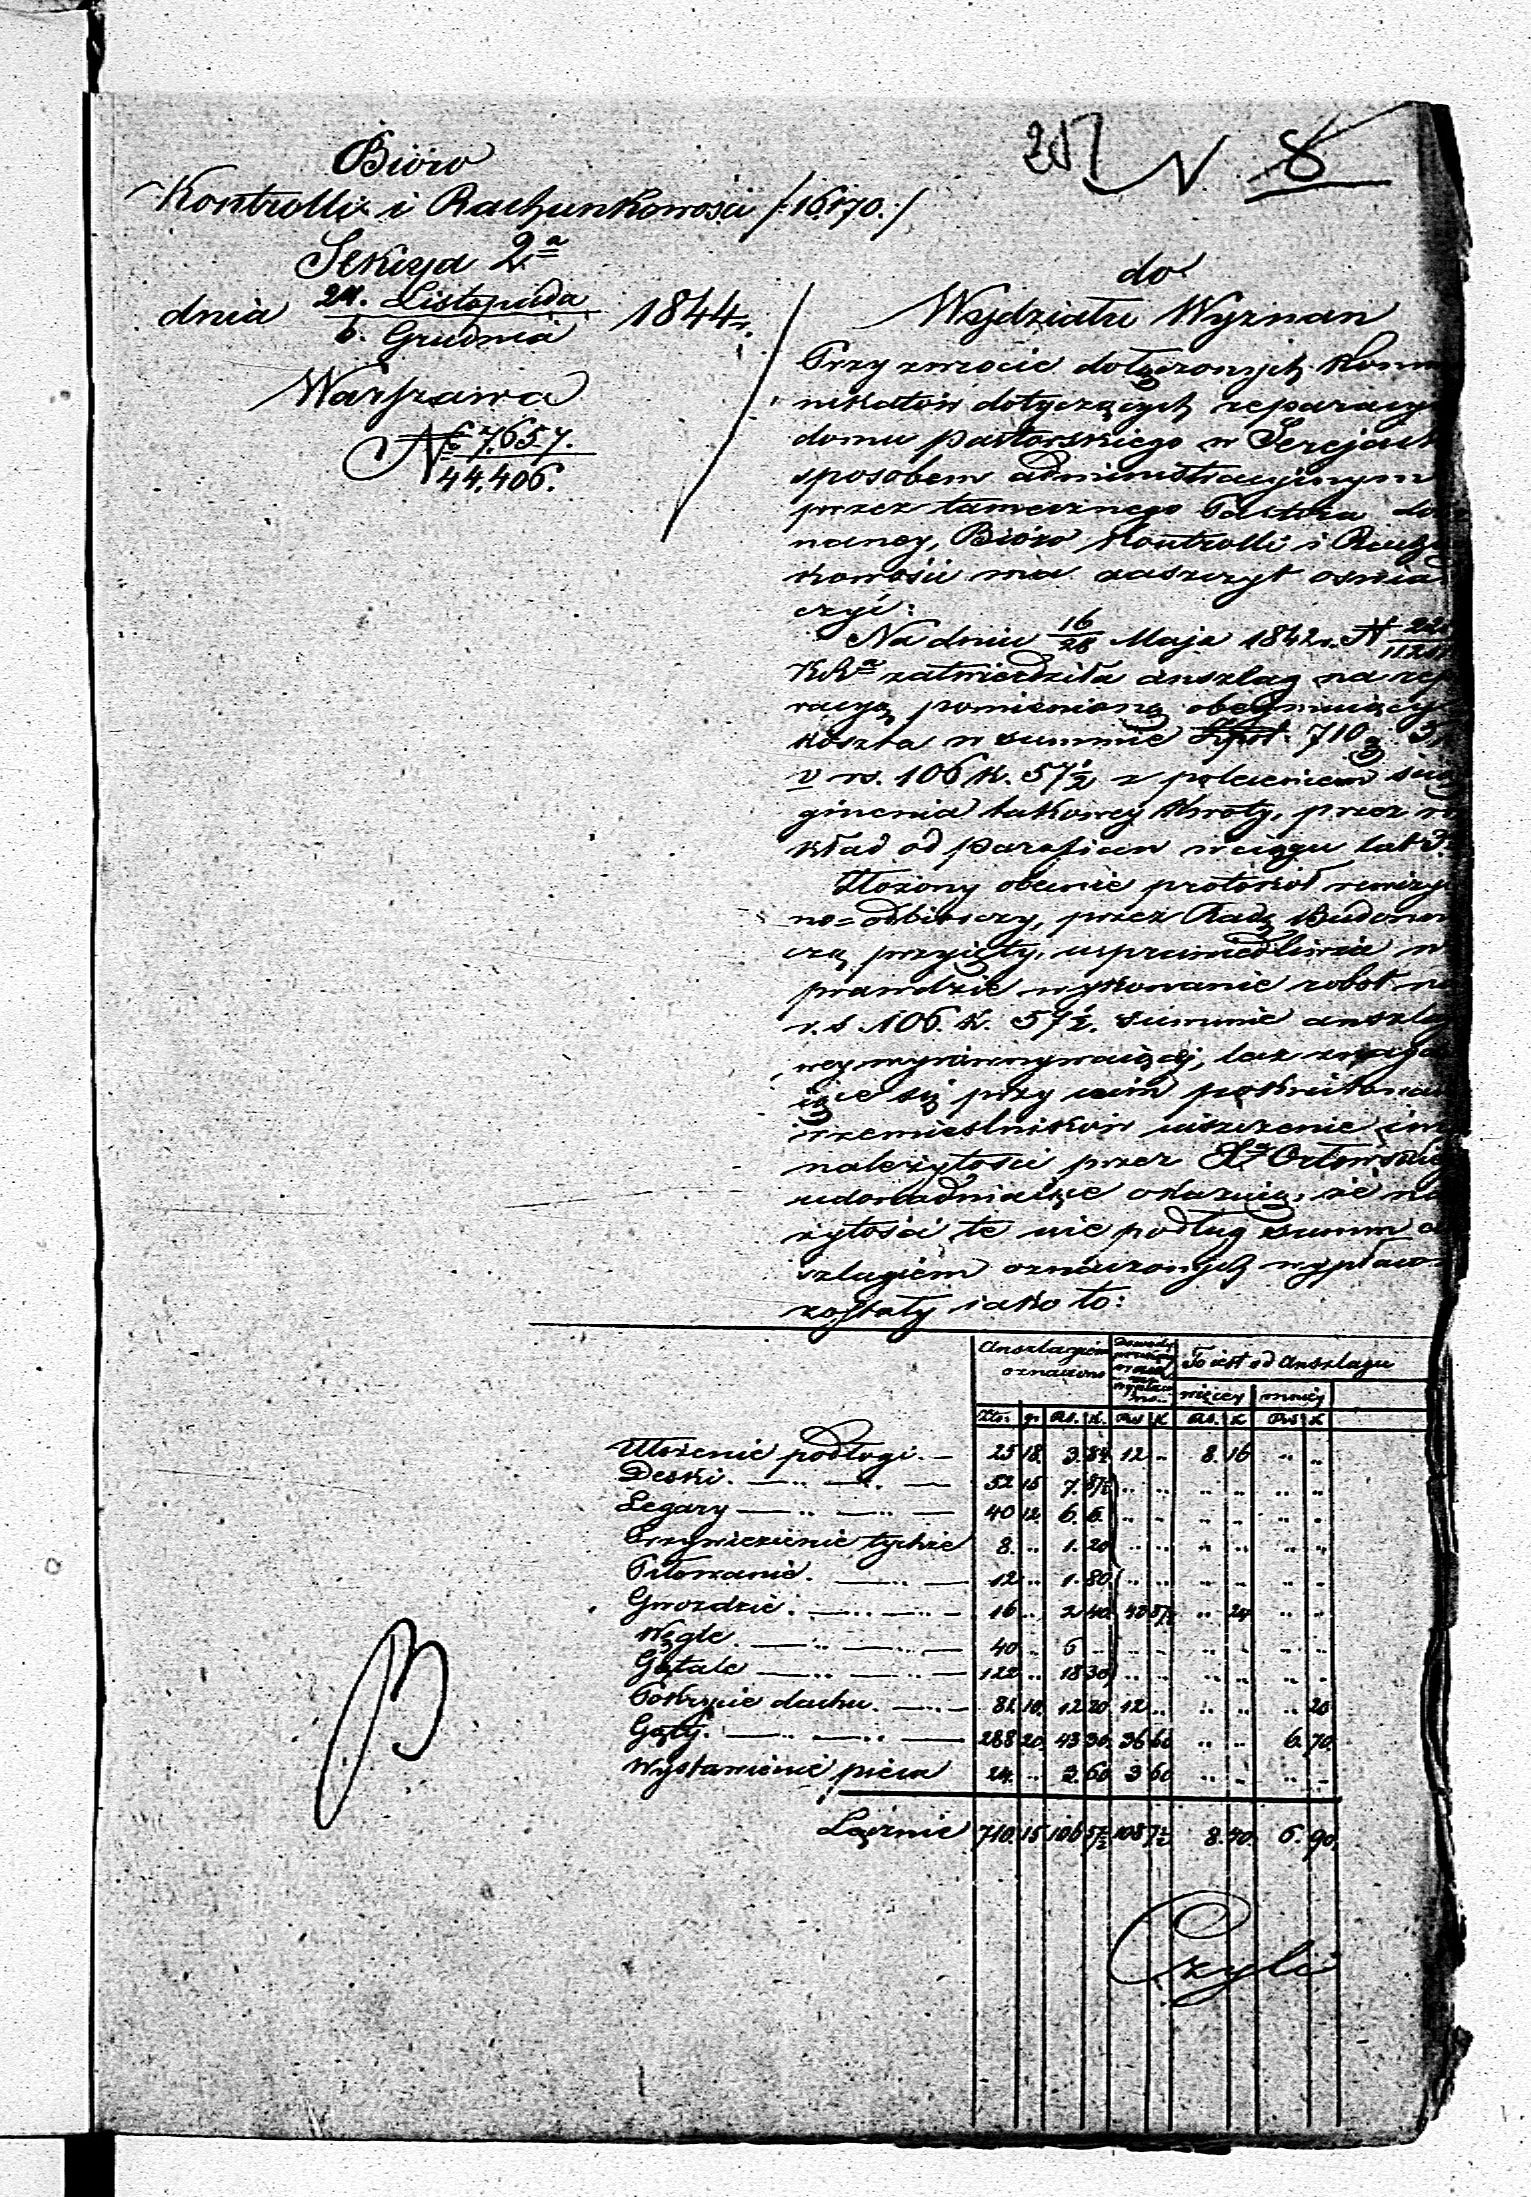 217 N 8
Bióro
Kontrolli i Rachunkowości /:16,170.:/
Sekcya 2ª
dnia 24. Listopada / 6. Grudnia 1844 r.
Warszawa
N 7657. / 44.406.
do
Wydziału Wyznan
Przy zwrocie dołączonych kom
nikatów dotyczących reparacyi
domu pastorskiego w Serejach
sposobem administracyjnym
przez tamecznego Pastora do
naney, Bióro Kontrolli i Rachu
kowości ma zaszczyt oswiad
czyć:
Na dniu 16/28 Maja 1842 r. N
KRª zatwierdziła anszlag na rep
racyą pomienioną obejmuiący
koszta w summie Złpol. 710 g.
v rs. 106 k. 57½ z poleceniem
gnienia takowey kwoty, przez ro
kład od parafian w ciągu lat
Złożony obecnie protokół rewizyi
no=odbiorczy, przez Radę Budowni
czą przyięty, usprawiedliwia w
prawdzie wykonanie robot na
r.s. 106. k. 57½. summie anszlag
wey wyrównywaiącey, lecz znayd
iące się przy nim pokwitowan
rzemieslników uiszczenie im
należytości przez Xª Orłowskieg
udowadniaiące okazuią, że na
żytości te nie podług summ a
szlagiem oznaczonych wypłaco
zostały iako to:
Anszlagiem oznaczono | To iest od Anszlagu
więcey | mniey
Złp. | gr | Rs. | k. | Rs | k | Rs. | k | Rs | k
Ułożenie podłogi. — 25 18. 3. 84 12 .. 8. 16 .. ..
Deski. — 52 15 7. 87½ .. .. .. .. .. ..
Legary — 40 12. 6. 6. .. .. .. .. .. ..
Przywiezienie tychże 8. .. 1. 20 .. .. .. .. .. ..
Piłowanie. — 12 .. 1. 80 .. .. .. .. .. ..
Gwozdzie. — 16 .. 2 40 43 87½ .. 24 .. ..
Węgle. — 40 .. 6 .. .. .. .. .. .. ..
Gątale — 122 .. 18 30 .. .. .. .. .. ..
Pokrycie dachu. — 81 10. 12 20 12 .. .. .. .. 20
Gąty. — 288 20. 43 30. 36 60 .. .. 6. 70.
Wystawienie pieca 24. .. 3. 60 3 60 .. .. .. ..
Łącznie 710. 15 106 57½ 108 7½ 8. 40. 6. 90.
Czyli